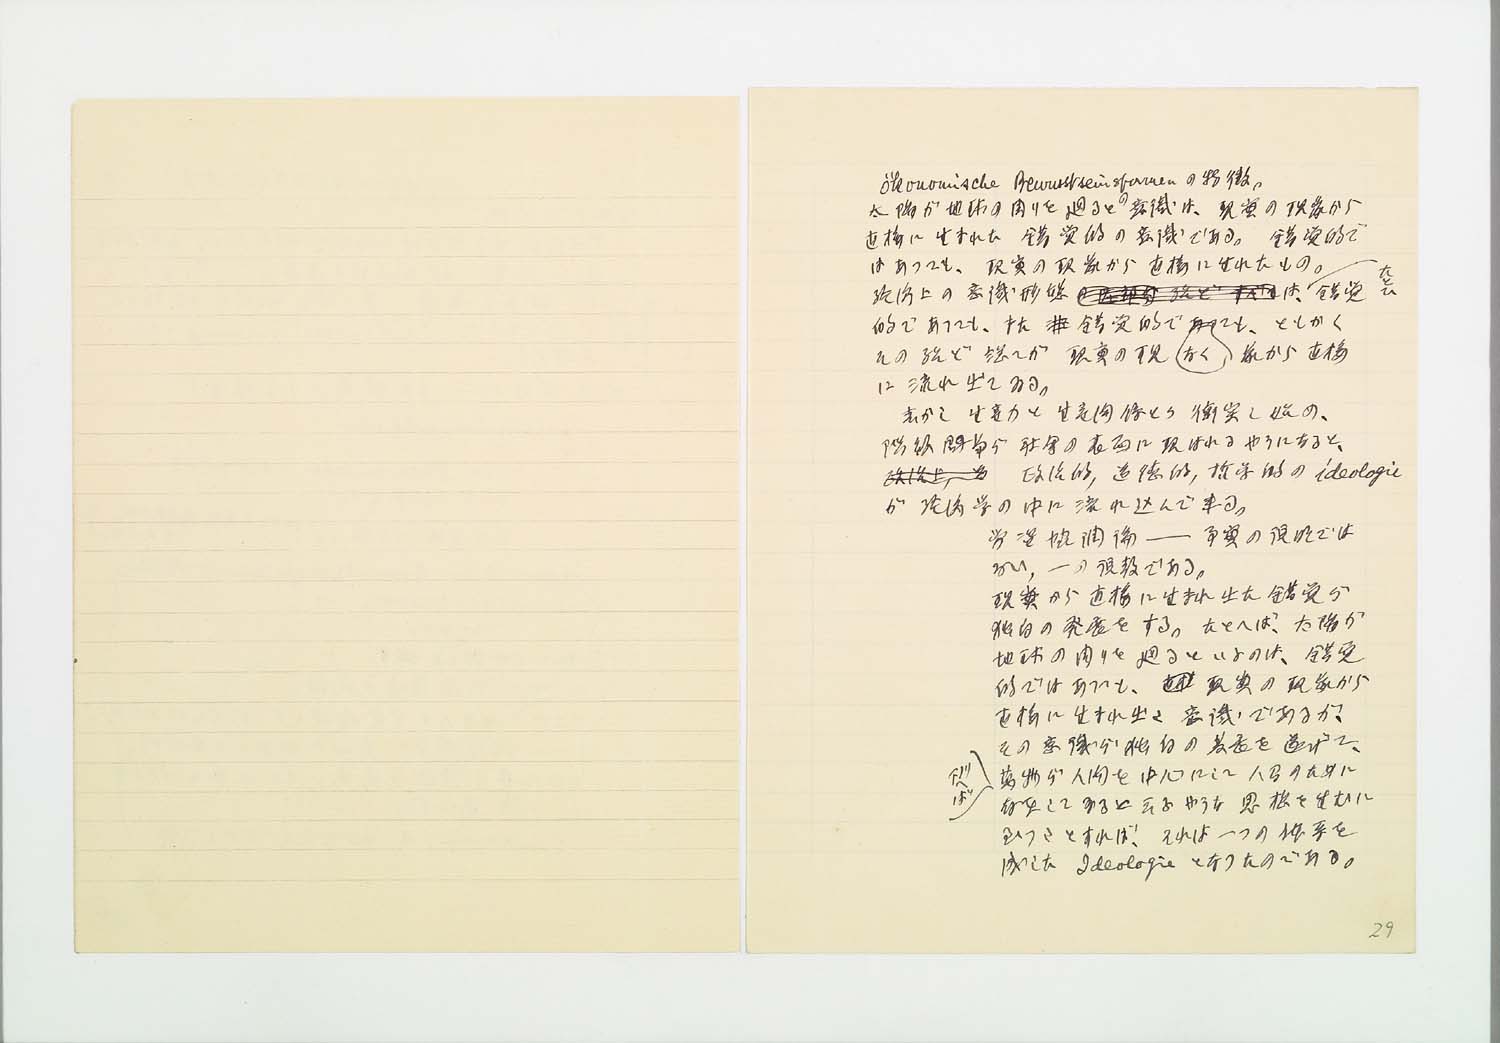 ökonomische Bewusstseinsformenの特徴。
太陽が地球の周りを廻るとの意識は、現実の現象から
直接に生まれた錯覚的の意識である。錯覚的で
はあつても、現実の現象から直接に生れたもの。
経済上の意識形態は、たとひ錯覚
的であつても、また非錯覚的でなくても、ともかく
その殆ど総てが現実の現象から直接
に流れ出てゐる。
しかし生産力と生産関係とが衝突し始め、
階級闘争が社会の表面に現はれるやうになると、
政治的, 道徳的, 哲学的のideologie
が経済学の中に流れ込んで来る。
労資協調論 —— 事実の説明では
ない, 一の説教である。
現実から直接に生まれ出た錯覚が
独自の発展をする。たとへば、太陽が
地球の周りを廻るといふのは、錯覚
的ではあつても、現実の現象から
直接に生まれ出た意識であるが、
その意識が独自の発展を遂げて、
例へば
万物が人間を中心にして人間のために
存在してゐると云ふやうな思想を生むに
至つたとすれば、それは一つの体系を
成したIdeologieとなつたのである。
29